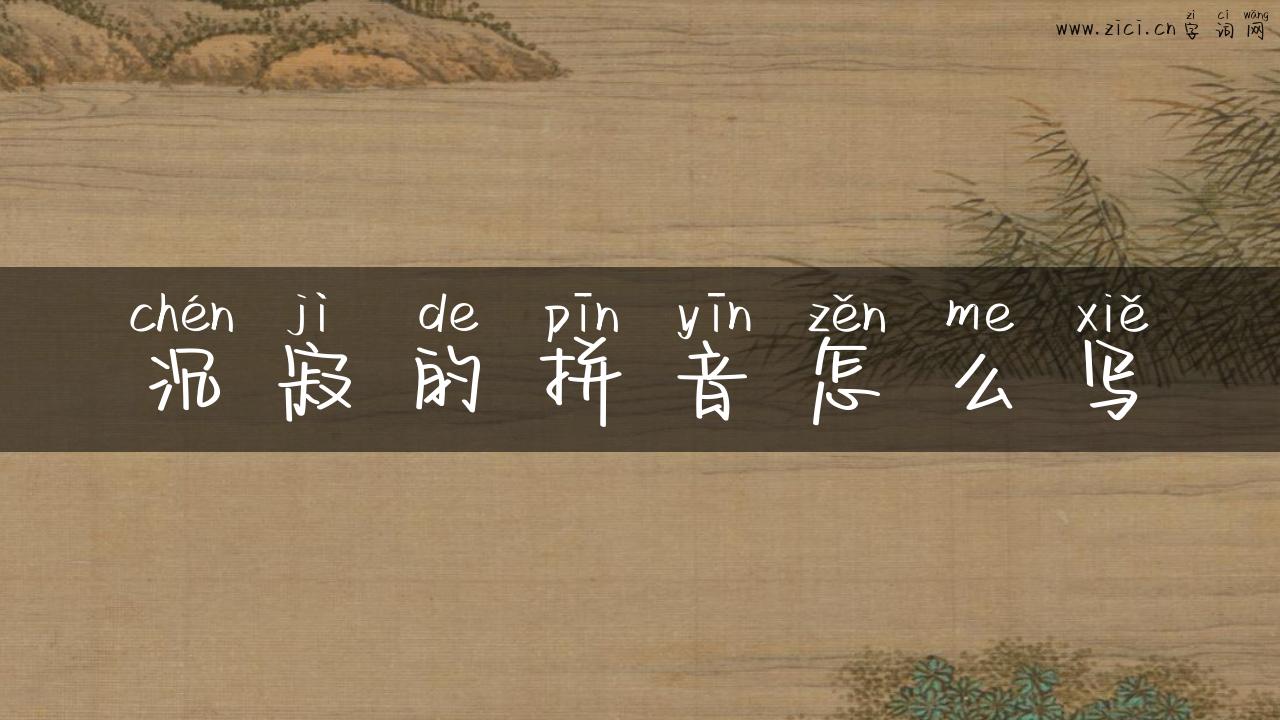 www.zici.cn zì cí wǎng
字词网
chén jì de pīn yīn zěn me xiě
沉寂的拼音怎么写